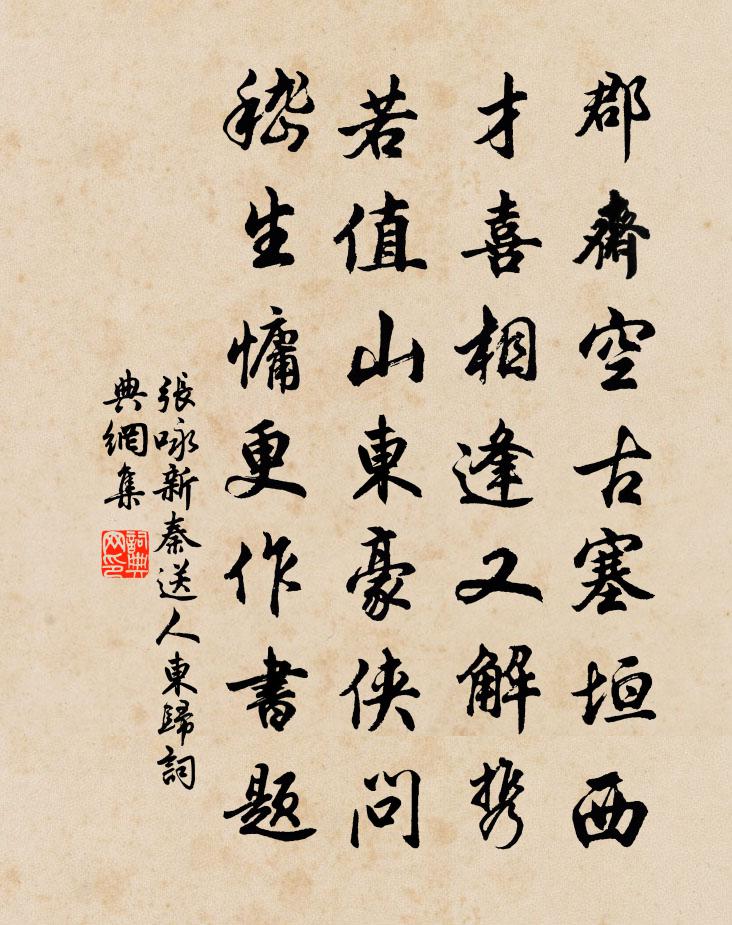 郡齋空古塞垣西
才喜相逢又解携
若值山東豪俠問
嵇生慵更作書題
張咏新秦送人東歸詞
典網集
詞典
网印